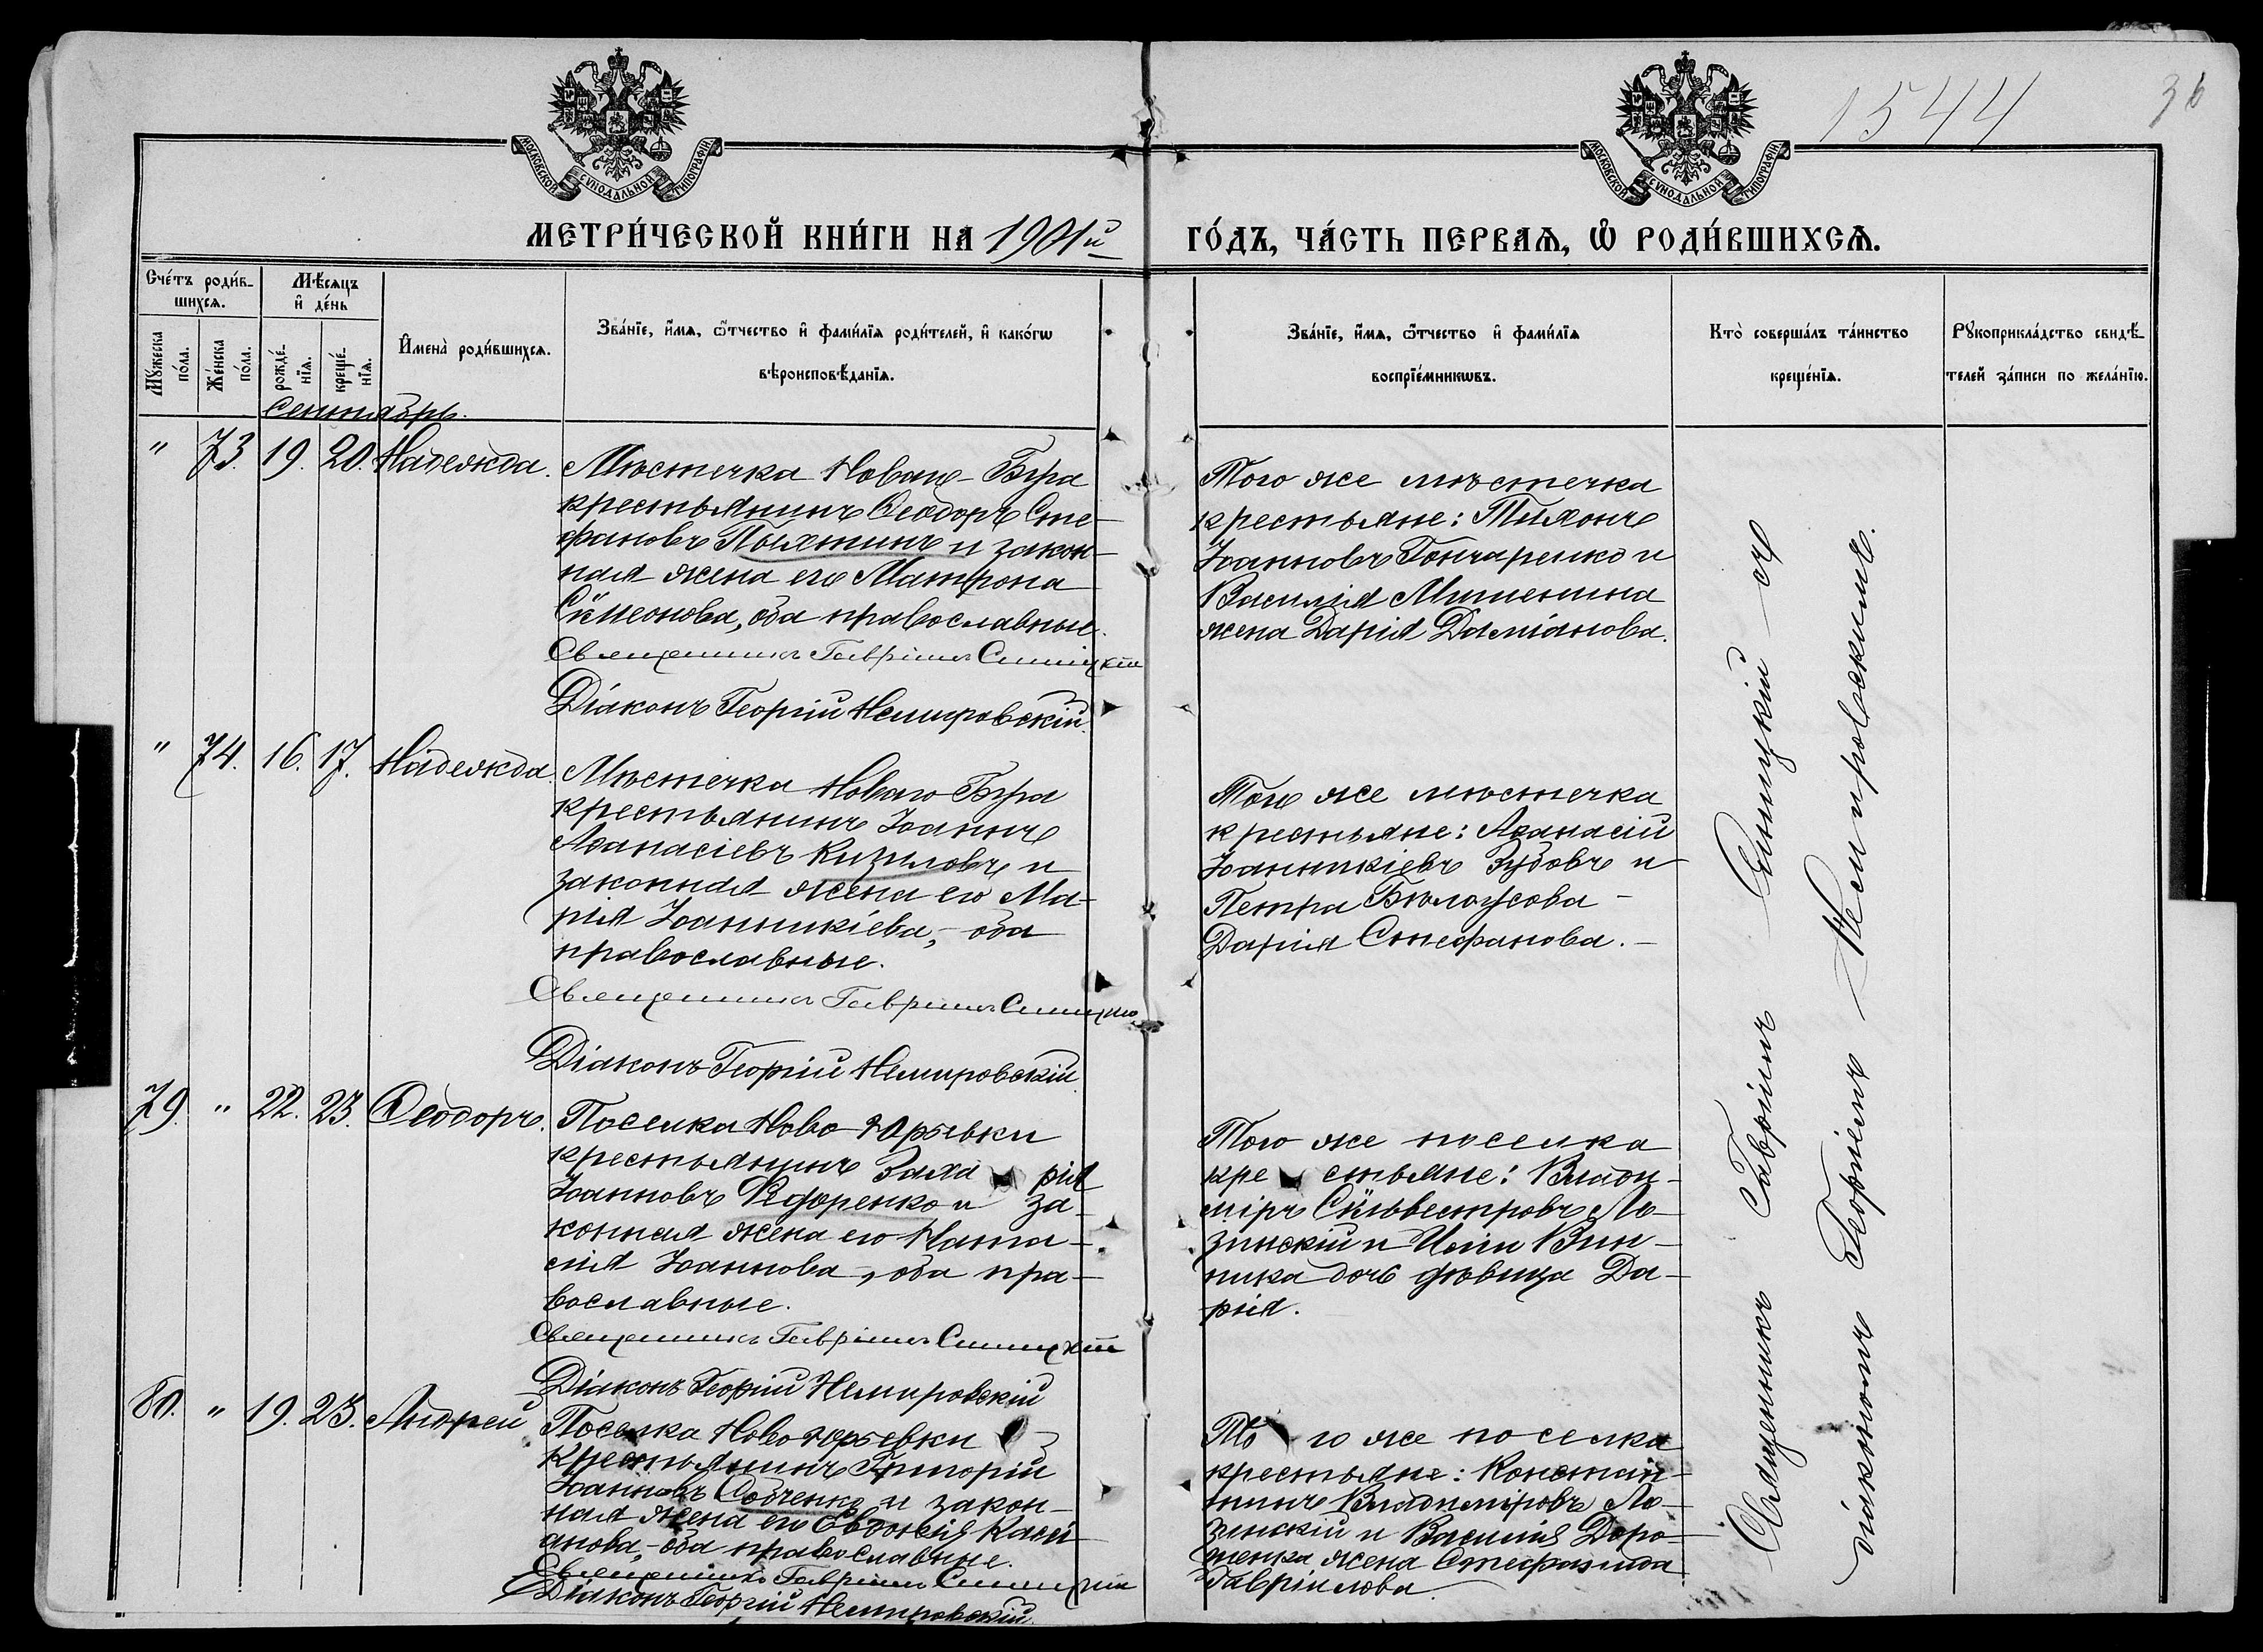 1544
36
МОСКОВСКОЙ СѴНОДАЛЬНОЙ ТИПОГРАФІИ
МОСКОВСКОЙ СѴНОДАЛЬНОЙ ТИПОГРАФІИ
МЕТРИ́ЧЕСКОЙ КНИ́ГИ НА 1901й ГО́ДЪ, ЧА́СТЬ ПЕРВАѦ, Ѽ РОДИ́ВШИХСѦ.
Сче́тъ роди́в-
шихсѧ.
Мꙋ́жеска по́ла.
Же́нска по́ла.
Мѣ́сѧцъ
и҆ де́нь
рожде́-нїѧ.
креще́-нїѧ.
И҆мена̀ роди́вшихсѧ.
Зва́нїе, и҆́мѧ, ѻ҆́тчество и҆ фами́лїѧ роди́телей, и҆ како́гѡ
вѣроисповѣ́данїѧ.
Зва́нїе, и҆́мѧ, ѻ҆́тчество и҆ фами́лїѧ
воспрїе́мникѡвъ.
Кто̀ соверша́лъ та́инство
креще́нїѧ.
Рꙋкоприкла́дство свидѣ́-
телей за́писи по жела́нїю.
Сентябрь.
" 73. 19. 20. Надежда.
Мѣстечка Новаго-Буга
крестьянинъ Ѳеодоръ Сте-
фановъ Пыхтинъ и закон-
ная жена его Матрона
Сѵмеонова, оба православные.
Священникъ Гавріилъ Синицкій
Діаконъ Георгій Немировскій.
Того же мѣстечка
крестьяне: Тихонъ
Іоанновъ Гончаренко и
Василія Мишенина
жена Дарія Даміанова.
" 74. 16. 17. Надежда.
Мѣстечка Новаго Буга
крестьянинъ Іоаннъ
Аѳанасіевъ Кизиловъ и
законная жена его Ма-
рія Іоанникіева, – оба
православные.
Священникъ Гавріилъ Синицкій
Діаконъ Георгій Немировскій.
Того же мѣстечка
крестьяне: Аѳанасій
Іоанникіевъ Зубовъ и
Петра Бѣлоусова –
Дарія Стефанова. –
79. " 22. 23. Ѳеодоръ.
Поселка Ново-Юрьевки
крестьянинъ Захарія
Іоанновъ Федоренко и за-
конная жена его Ната-
лія Іоаннова, оба пра-
вославные.
Священникъ Гавріилъ Синицкій
Діаконъ Георгій Немировскій
Того же поселка
крестьяне: Влади-
міръ Сѵльвестровъ Ло-
зинскій и Иліи Вин-
ника дочь дѣвица Да-
рія.
80. " 19. 23. Андрей
Поселка Ново Юрьевки
крестьянинъ Григорій
Іоанновъ Собченко и закон-
ная жена его Евдокія Касси-
анова, – оба православные.
Священникъ Гавріилъ Синицкій
Діаконъ Георгій Немировскій.
Того же поселка
крестьяне: Констан-
тинъ Владиміровъ Ло-
зинскій и Василія Доро-
шенка жена Стефанида
Гавріилова.
Священникъ Гавріилъ Синицкій съ
діакономъ Георгіемъ Немировскимъ.